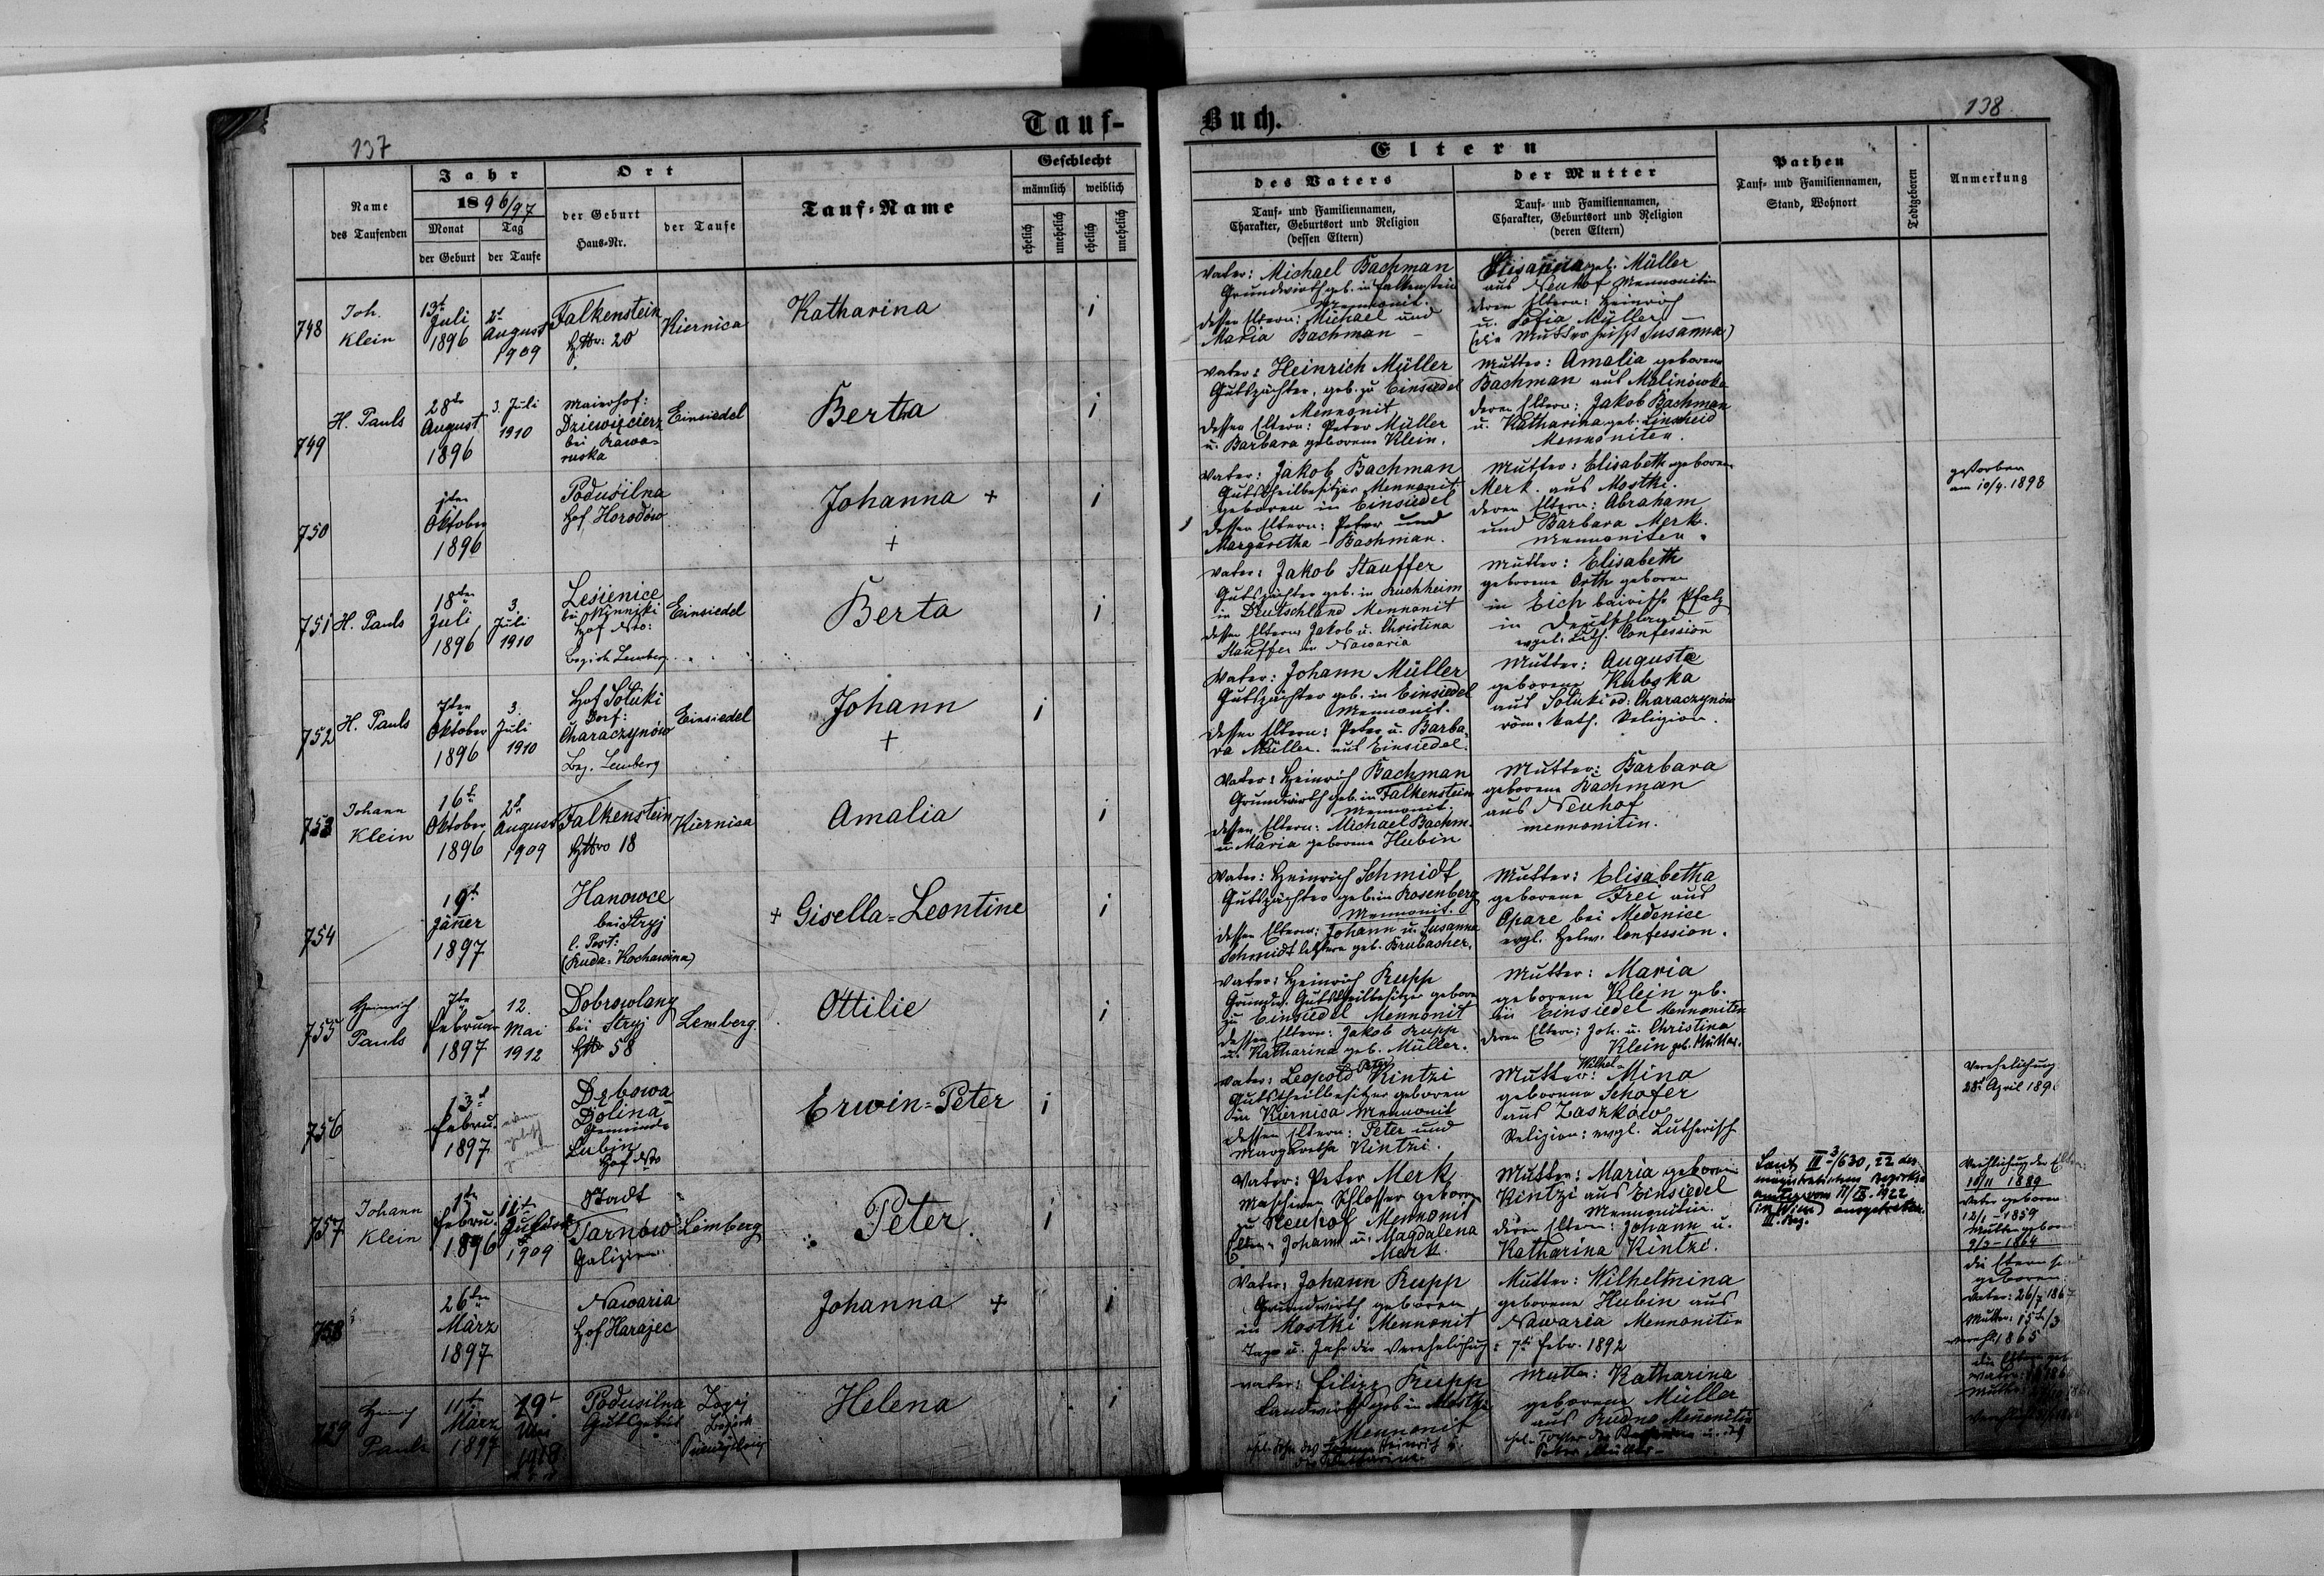 137
Tauf-
Name
des Taufenden
Jahr
1896/97
Monat
Tag
der Geburt
der Taufe
Ort
der Geburt
Haus-Nr.
der Taufe
Tauf-Name
Geschlecht
männlich
weiblich
ehelich
unehelich
ehelich
unehelich
748
Joh.
Klein
13t
Juli
1896
2t
August
1909
Falkenstein
20
Kiernica
Katharina
1
749
H. Pauls
28te
August
1896
3. Juli
1910
Maierhof:
Dziewięcierz
bei Rawa-
ruska
Einsiedel
Berta
1
750
Oktober
1896
Podusilna
Hof Horodów
Johanna +
+
1
751
H. Pauls
18ten
Juli
1896
3.
Juli
1910
Lesienice
bei Winniki
Hof
Bezirk Lemberg
Einsiedel
Berta
1
752
H. Pauls
7ten
Oktober
1896
3.
Juli
1910
Hof Soluki
Dorf:
Characzynów
Bez. Lemberg
Einsiedel
Johann
+
1
753
Johann
Klein
16t
Oktober
1896
2t
August
1909
Falkenstein
18
Kiernica
Amalia
1
754
19t
Jäner
1897
Hanowce
bei Stryj
l. Post:
(Ruda-Kochawina)
+ Gisella-Leontine
1
755
Heinrich
Pauls
7te
Februar
1897
12.
Mai
1912
Dobrowlany
bei Stryj
58
Lemberg.
Ottilie
1
756
13t
Febru.
1897
Dębowa
Dolina
Gemeinde
Lubin
Hof
Erwin-Peter
1
757
Johann
Klein
1te
Febru.
1896
11te
1909
Stadt
Tarnów
Galizien
Lemberg
Peter.
1
758
26ten
März
1897
Nawaria
Hof Harajec
Johanna +
1
759
Pauls
11te
März
1897
19t
Mai
1918
Podusilna
Gutsgebiet
Helena
1
Buch.
138
Eltern
des Vaters
Tauf- und Familiennamen,
Charakter, Geburtsort und Religion
(dessen Eltern)
der Mutter
Tauf- und Familiennamen,
Charakter, Geburtsort und Religion
(deren Eltern)
Pathen
Tauf- und Familiennamen,
Stand, Wohnort
Todtgeboren
Anmerkung
Vater: Michael Bachman
Grundwirth geb. in Falkenstein
Mennonit.
dessen Eltern: Michael und
Maria Bachman -
geb. Müller
aus Neuhof Mennonitin
deren Eltern: Heinrich
u. Sofia Müller. -
(die Mutter heißt Susanna)
Vater: Heinrich Müller
Gutspächter, geb. zu Einsiedel
Mennonit
dessen Eltern: Peter Müller
u. Barbara geborene Klein.
Mutter: Amalia geborene
Bachman aus Malinówka
deren Eltern: Jakob Bachman
u. Katharina geb. Linscheid
Mennoniten.
Vater: Jakob Bachman
Gutstheilbesitzer Mennonit
geboren in Einsiedel
dessen Eltern: Peter und
Margaretha - Bachman.
Mutter: Elisabeth geborene
Merk. aus Mostki.
deren Eltern: Abraham
und Barbara Merk.
Mennoniten.
gestorben
am 10/4. 1898
Vater: Jakob Stauffer
Gutspächter geb. in Ruchheim
in Deutschland Mennonit
dessen Eltern Jakob u. Christina
Stauffer in Nawaria
Mutter: Elisabeth
geborene Orth geboren
in Eich bairische Pfalz
in Deutschland
evgl. Luth. Confession
Vater: Johann Müller
Gutspächter geb. in Einsiedel
Mennonit.
dessen Eltern: Peter u. Barba-
ra Müller. aus Einsiedel.
Mutter: Augusta
geborene Kubska
aus Soluki od: Characzynów
röm. kath. Religion.
Vater: Heinrich Bachman
Grundwirth geb. in Falkenstein
Mennonit.
dessen Eltern: Michael Bachm.
u. Maria geborene Hubin
Mutter: Barbara
geborene Bachman
aus Neuhof
mennonitin.
Vater: Heinrich Schmidt
Gutspächter geb. in Rosenberg
Mennonit.
dessen Eltern: Johann u. Susanna
Schmidt letztere geb. Brubacher.
Mutter: Elisabetha
geborene Frei aus
Opare bei Medenice
evgl. Helv. Confession.
Vater: Heinrich Rupp
Grundw. Gutstheilbesitzer geboren
zu Einsiedel Mennonit
dessen Eltern: Jakob Rupp
u. Katharina geb. Müller.
Mutter: Maria
geborene Klein geb.
in Einsiedel Mennonitin
deren Eltern: Joh. u. Christina
Klein geb. Müller.
Vater: Leopold Peter Kintzi
Gutstheilbesitzer geboren
in Kiernica Mennonit
dessen Eltern: Peter und
Margaretha Kintzi.
Wilhel-
Mutter: Mina
geborene Schafer
aus Zaszków
Religion: evgl. Lutherisch
Verehelichung
28t April 1896
Vater: Peter Merk
Maschinen Schlosser geboren
zu Neuhof Mennonit
Eltern: Johann u. Magdalena
Merk.
Mutter: Maria geborene
Kintzi aus Einsiedel
Mennonitin.
deren Eltern: Johann u.
Katharina Kintzi.
Laut III-3/630, 22 des
magistratischen Bezirks-
amtes vom 11/IX. 1922
(in Wien) ausgetreten.
III. Bez.
Verehlichung der Eltern:
10/11 - 1889
Vater geboren
12/1 - 1859
Mutter geboren
9/3 - 1864
Vater: Johann Rupp
Grundwirth geboren
in Mostki Mennonit
Tag u. Jahr der Verehelichung: 7te Febr. 1892
Mutter: Wilhelmina
geborene Hubin aus
Nawaria Mennonitin
die Eltern
geboren:
Vater: 26/7 1867
Mutter: 15te/3
1865
Vater: Filipp Rupp
Landwirth geb. in Mostki
Mennonit
Mutter: Katharina
geborene Müller
aus Rudno Menonitin
Peter Müller -